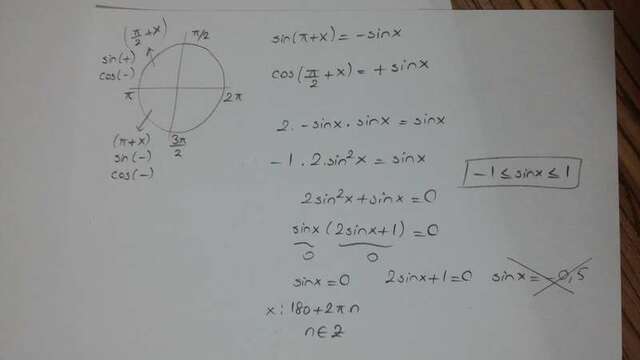 (π/2 + x)
π/2
sin(+)
cos(-)
π
2π
(π+x)
sin(-)
cos(-)
3π/2
sin(π+x) = -sinx
cos(π/2 + x) = + sinx
2. -sinx . sinx = sinx
-1 . 2. sin²x = sinx
-1 ≤ sinx ≤ 1
2sin²x + sinx = 0
sinx (2sinx+1) = 0
0 0
sinx = 0 2sinx+1 = 0 sinx = -0,5
x : 180 + 2πn
n ∈ Z